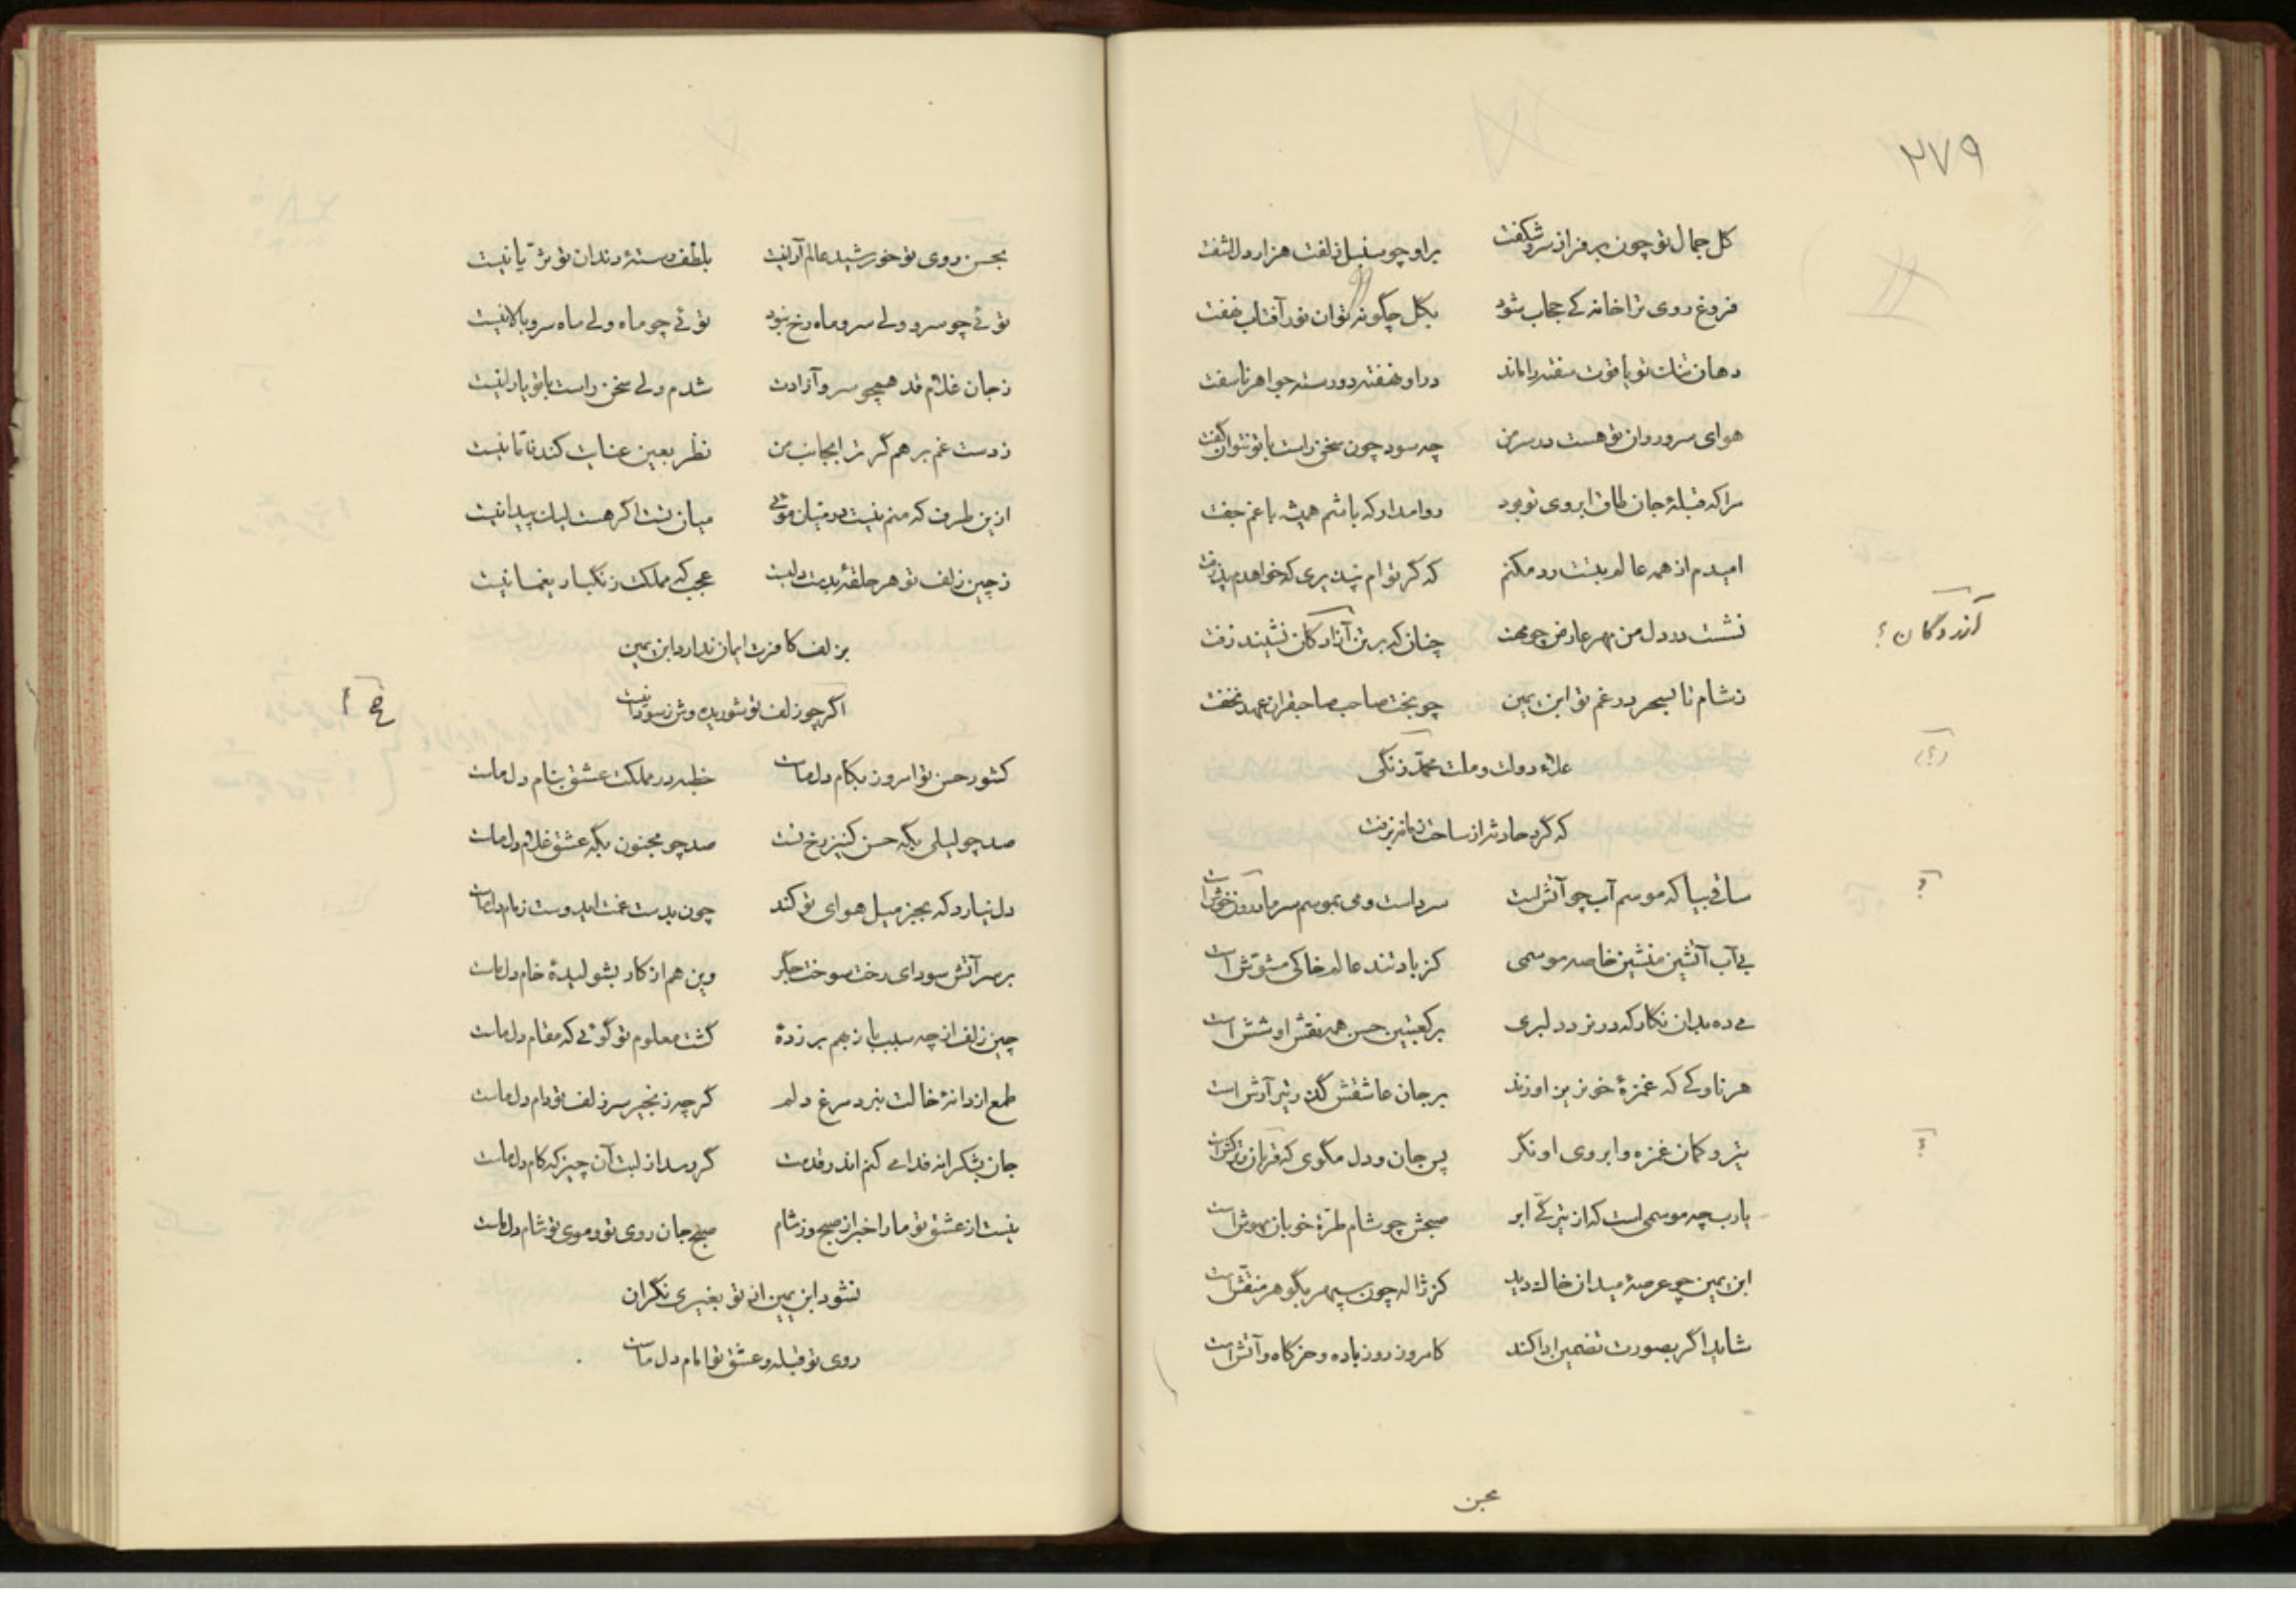 ۲۷۹
کل جمال تو چون بر فراز سرو شکفت براو چو سنبل زلفت هزار دل آشفت
فروغ روی ترا خانه کے حجاب شود بکل چگونه توان نور آفتاب نهفت
دهان تنك تو یاقوت سفته را ماند در او نهفته دو رسته جواهر ناسفت
هوای سرو روان تو هست در سر من چه سود چون سخن راست با تو نتوان گفت
مرا که قبلهٔ جان طاق ابروی تو بود روا مدار که باشم همیشه با غم جفت
امیدم از همه عالم بتست رد مکنم که کر توام نپذیری که خواهدم پذرفت
نشست در دل من مهر عارض چو مهت چنان که بر تن آزادکان نشیند زفت
آزردگان ؟
ز شام تا بسحر در غم تو ابن یمین چو بخت صاحب صاحبقران عهد نخفت
علاء دولت و ملت محمد زنگی
(؟)
که گرد حادثه از ساحت زمانه برفت
ساقی بیا که موسم آب چو آتش است سرد است و می بموسم سرما خوش است
؟
بے آب آتشین منشین خاصه موسمی کز باد تند عالم خاکی مشوّش است
مے ده بدان نگار که در نرد دلبری بر کعبتین حسن همه نقش او شش است
هر ناوکے که غمزهٔ خونریز او زند بر جان عاشقش گذر تیر آرش است
تیر و کمان غمزه و ابروی او نگر پس جان و دل مگوی که قربان ترکش است
؟
یارب چه موسمی است که از تیرکّے ابر صبحش چو شام طرّهٔ خوبان مهوش است
ابن یمین چو عرصهٔ میدان خاك دید کز ژاله چون سپهر بگوهر منقّش است
شاید اگر بصورت تضمین ادا کند کامروز روز باده و خرکاه و آتش است
بحسن
بحسن روی تو خورشید عالم آرا نیست بلطف رستهٔ دندان تو ثریّا نیست
توئے چو سرو ولے سرو ماه رخ نبود توئے چو ماه ولے ماه سرو بالا نیست
ز جان غلام قد همچو سرو آزادت شدم ولے سخن راست با تو یارا نیست
ز دست غم برهم گر ترا بجانب من نظر بعین عنایت کند نه تا نیست
ازین طرف که منم نیست در میان موئے میان تست اکر هست لیك پیدا نیست
ز چین زلف تو هر حلقهٔ بدست دلیست عجب که مملکت زنگبار یغما نیست
بزلف کافرت ایمان ندارد ابن یمین
اگر چو زلف تو شوریده وش ز سودا نیست
کشور حسن تو امروز بکام دل ماست خطبه در مملکت عشق بنام دل ماست
صد چو لیلی بگه حسن کنیز رخ تست صد چو مجنون بگه عشق غلام دل ماست
دل نیارد که بجز میل هوای تو کند چون بدست غمت ایدوست زمام دل ماست
بر سر آتش سودای رخت سوخت جگر وین هم از کار بشولیدهٔ خام دل ماست
چین زلف از چه سبب باز بهم بر زدهٔ گشت معلوم تو گوئی که مقام دل ماست
طمع از دانهٔ خالت نبرد مرغ دلم گرچه زنجیر سر زلف تو دام دل ماست
جان بشکرانه فدا مے کنم اندر قدمت گر رسد از لبت آن چیز که کام دل ماست
نیست از عشق تو ما را خبر از صبح و ز شام صبح جان روی تو و موی تو شام دل ماست
نشود ابن یمین از تو بغیری نگران
روی تو قبله و عشق تو امام دل ماست